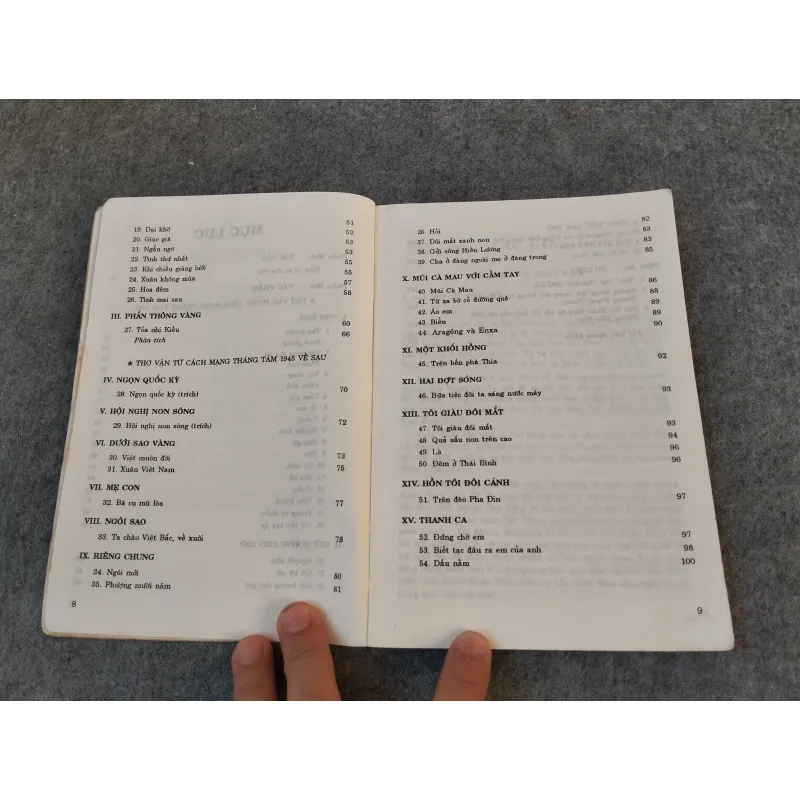 19. Dại khờ 51
20. Giục giã 52
21. Ngẩn ngơ 53
22. Tình thứ nhất 53
23. Khi chiều giăng lưới 55
24. Xuân không mùa 55
25. Hoa đêm 57
26. Tình mai sau 58
III. PHẤN THÔNG VÀNG
27. Tỏa nhị Kiều 60
Phân tích 66
★ THƠ VĂN TỪ CÁCH MẠNG THÁNG TÁM 1945 VỀ SAU
IV. NGỌN QUỐC KỲ
28. Ngọn quốc kỳ (trích) 70
V. HỘI NGHỊ NON SÔNG
29. Hội nghị non sông (trích) 72
VI. DƯỚI SAO VÀNG
30. Việt muôn đời 73
31. Xuân Việt Nam 75
VII. MẸ CON
32. Bà cụ mù lòa 77
VIII. NGÔI SAO
33. Ta chào Việt Bắc, về xuôi 78
IX. RIÊNG CHUNG
34. Ngói mới 80
35. Phượng mười năm 81
8
26. Hỏi 82
37. Đôi mắt xanh non 83
38. Gửi sông Hiền Lương 83
39. Cha ở đàng ngoài mẹ ở đàng trong 85
X. MŨI CÀ MAU VỚI CẦM TAY
40. Mũi Cà Mau 86
41. Từ xa bờ cỏ đường quê 88
42. Áo em 89
43. Biển 89
44. Aragông và Enxa 90
XI. MỘT KHỐI HỒNG
45. Trên bến phà Thia 92
XII. HAI ĐỢT SÓNG
46. Bữa tiệc đôi ta sáng nước mây 92
XIII. TÔI GIÀU ĐÔI MẮT
47. Tôi giàu đôi mắt 93
48. Quả sấu non trên cao 94
49. Là 96
50. Đêm ở Thái Bình 96
XIV. HỒN TÔI ĐÔI CÁNH
51. Trên đèo Pha Đin 97
XV. THANH CA
52. Đứng chờ em 97
53. Biết tạc đâu ra em của anh 98
54. Dấu nằm 100
9